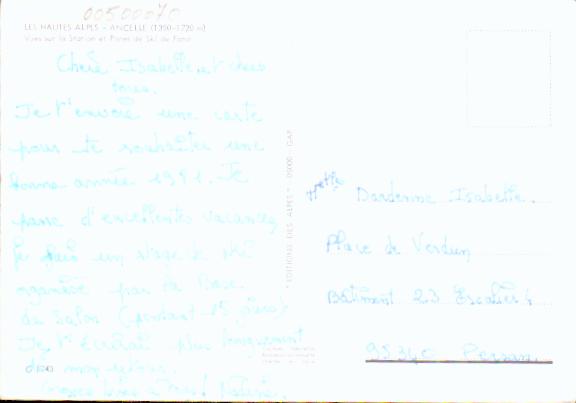 00500070
LES HAUTES ALPES - ANCELLE (1350-1720 m)
Vues sur la Station et Pistes de Ski de Fond
Chère Isabelle et chers
Je t'envoie une carte
pour te souhaiter une
bonne année 1991. Je
passe d'excellentes vacances
Je fais un stage de ski
organisé par la Base
de Salon (pendant 15 jours)
Je t'écrirai plus longuement
dès mon retour.
Grosses bises à tous!
"EDITIONS DES ALPES" - 05000 - GAP
Melle Dardenne Isabelle.
Place de Verdun
Bâtiment 23 Escalier 4
95340 Persan.